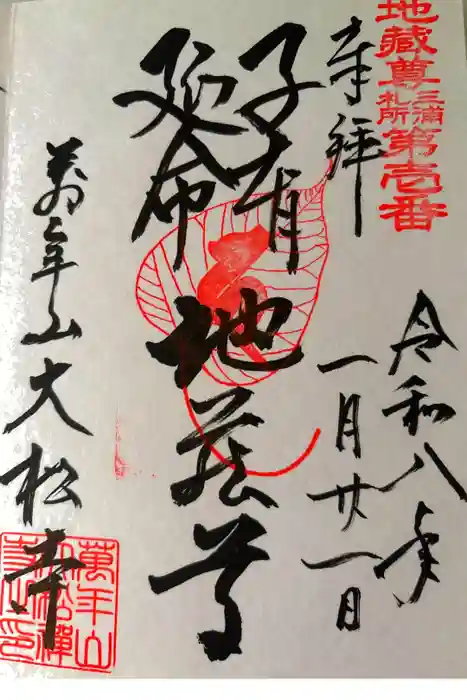 地蔵尊三浦札所第壱番
奉拝
令和八年
一月廿一日
子育
延命
地蔵尊
萬年山大松寺
萬年山大松禅寺之印